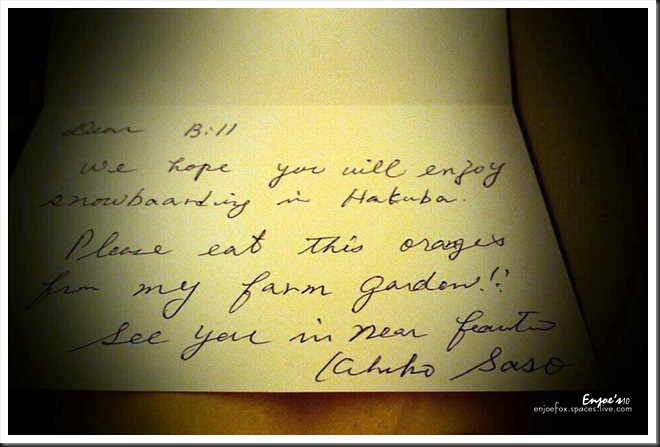 Dear Bill
We hope you will enjoy
snowbaarding in Hakuba.
Please eat this oranges
from my farm garden!!
See you in near
Saso
Enjoe's10
enjoefox.spaces.live.com